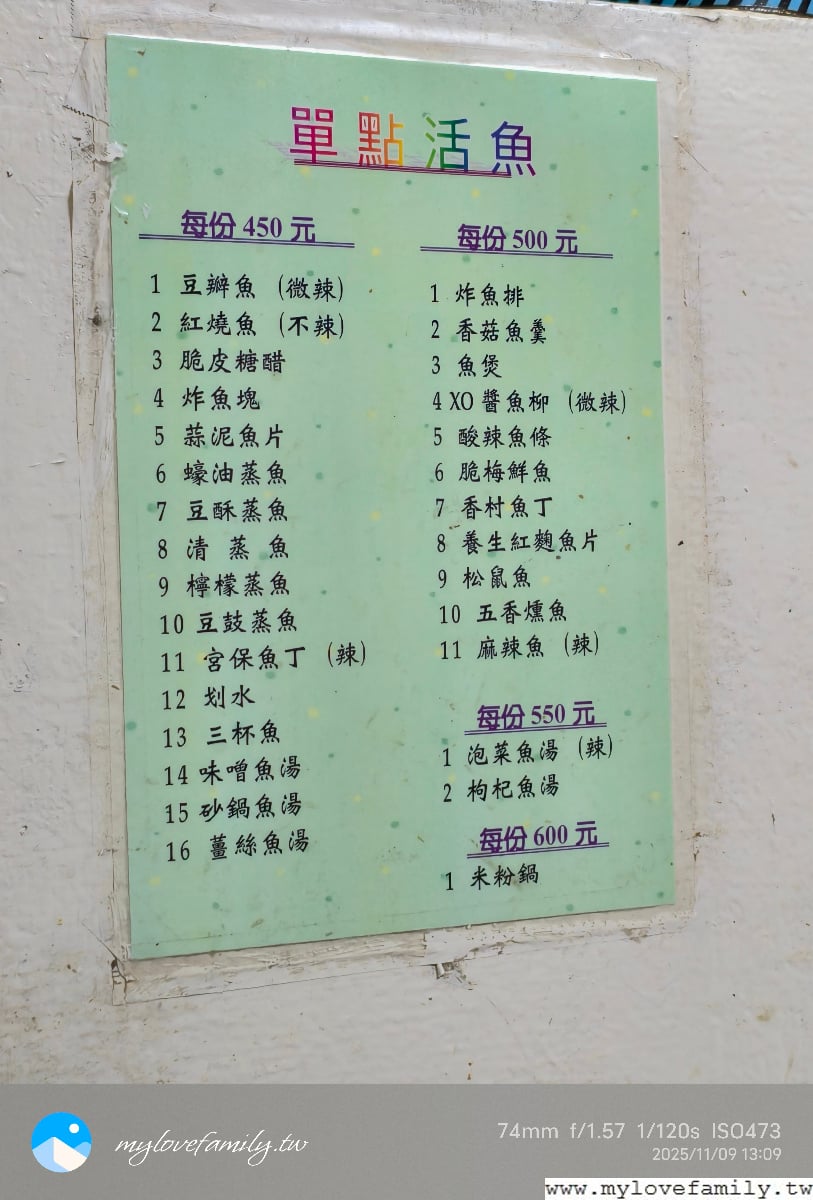 單點活魚
每份 450 元
1 豆瓣魚 (微辣)
2 紅燒魚 (不辣)
3 脆皮糖醋
4 炸魚塊
5 蒜泥魚片
6 蠔油蒸魚
7 豆酥蒸魚
8 清 蒸 魚
9 檸檬蒸魚
10 豆鼓蒸魚
11 宮保魚丁 (辣)
12 划水
13 三杯魚
14 味噌魚湯
15 砂鍋魚湯
16 薑絲魚湯
每份 500 元
1 炸魚排
2 香菇魚羹
3 魚煲
4 XO 醬魚柳 (微辣)
5 酸辣魚條
6 脆梅鮮魚
7 香村魚丁
8 養生紅麴魚片
9 松鼠魚
10 五香燻魚
11 麻辣魚 (辣)
每份 550 元
1 泡菜魚湯 (辣)
2 枸杞魚湯
每份 600 元
1 米粉鍋
mylovefamily.tw
74mm f/1.57 1/120s ISO473
2025/11/09 13:09
www.mylovefamily.tw